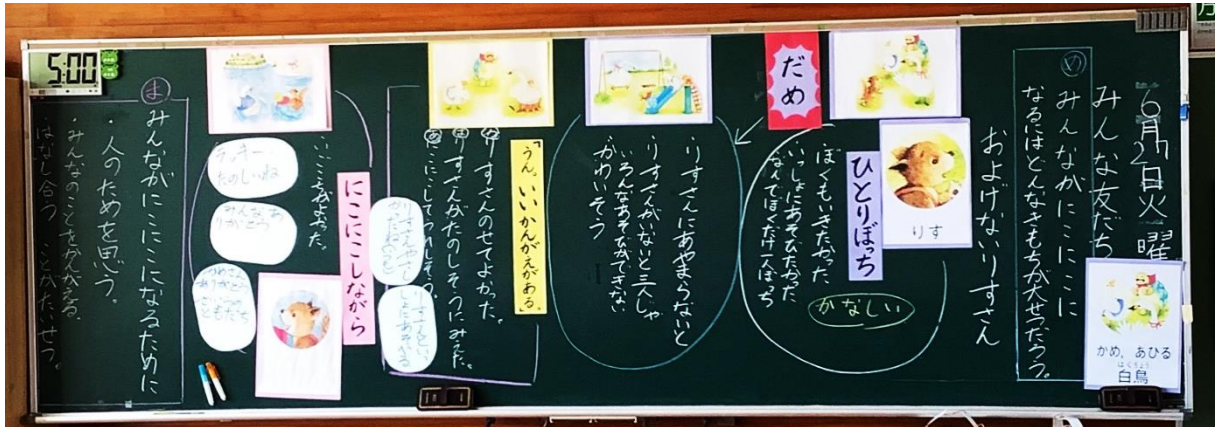 6月2日火曜
みんな友だち
およげないりすさん
め
みんながにこにこに
なるにはどんなきもちが大せつだろう。
かめ、あひる
はくちょう
白鳥
りす
ひとりぼっち
ぼくもいきたかった
いっしょにあそびたかった
なんでぼくだけ一人ぼっち
かなしい
だめ
・りすさんにあやまらないと
・りすさんがいないと三人じゃ
いろんなあそびができない
かわいそう
「うん。いいかんがえがある。」
りすさんのせてよかった。
りすさんがたのしそうにみえた。
にこにこしてうれしそう。
にこにこしながら
いごこちがよかった。
ラッキー
たのしいね
みんなあ
りがとう
かめさん
ありがとう
ともだち
ま
みんながにこにこになるために
・人のためを思う。
・みんなのことをかんがえる。
・はなし合う ことがたいせつ。
5:00